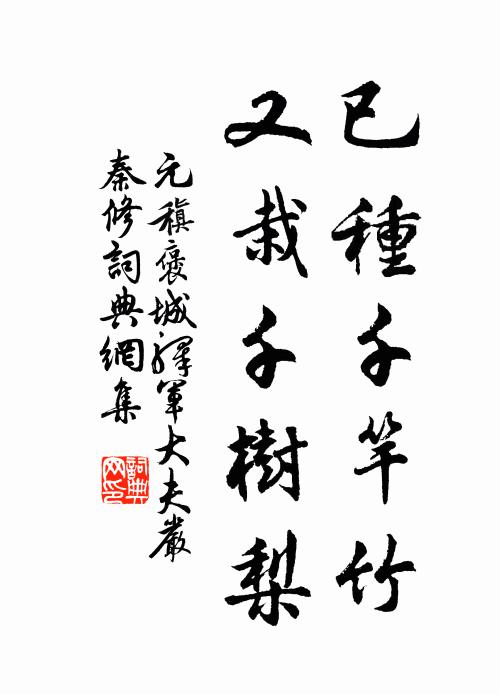 已種千竿竹
又栽千樹梨
元稹褒城驛軍大夫嚴
秦修詞典網集
詞典網印